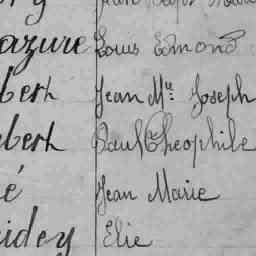 azure Louis Edmond
bert Jean Mie Joseph
bert Paul Théophile
é Jean Marie
idey Elie